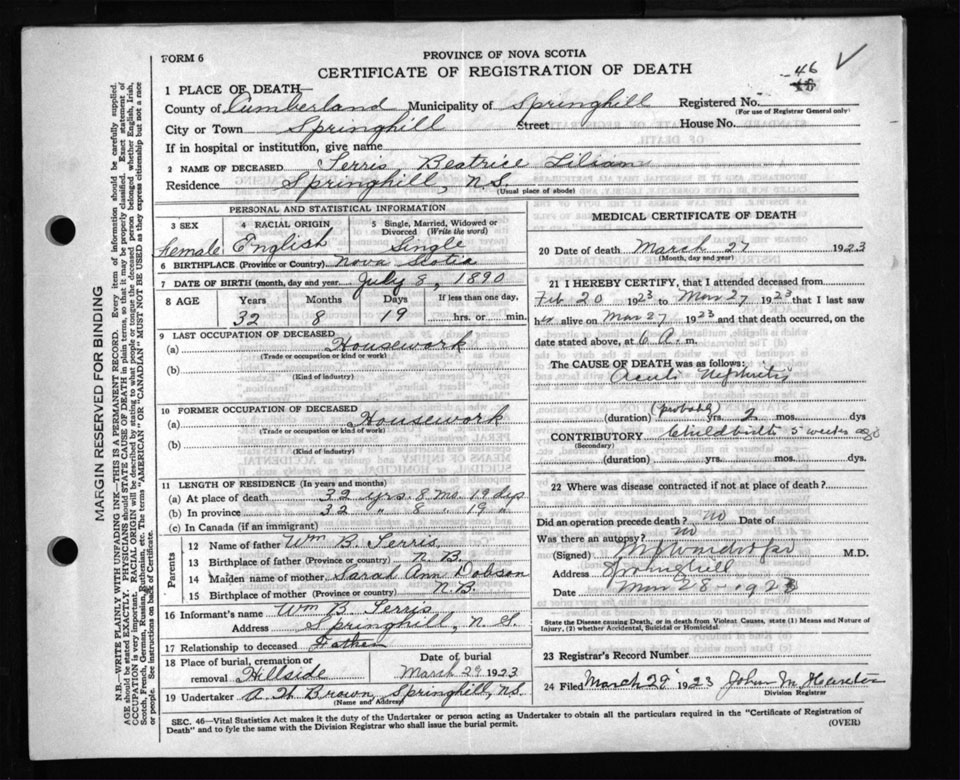 FORM 6
PROVINCE OF NOVA SCOTIA
CERTIFICATE OF REGISTRATION OF DEATH
46
1 PLACE OF DEATH—
County of Cumberland Municipality of Springhill Registered No.
(For use of Registrar General only)
City or Town Springhill Street House No.
If in hospital or institution, give name
2 NAME OF DECEASED Terris Beatrice Lilian
Residence Springhill, N.S.
(Usual place of abode)
PERSONAL AND STATISTICAL INFORMATION
3 SEX 4 RACIAL ORIGIN 5 Single, Married, Widowed or Divorced (Write the word)
female English Single
6 BIRTHPLACE (Province or Country) Nova Scotia
7 DATE OF BIRTH (month, day and year) July 8, 1890
8 AGE Years Months Days If less than one day,
32 8 19 hrs. or min.
9 LAST OCCUPATION OF DECEASED
(a) Housework
(Trade or occupation or kind or work)
(b)
(Kind of industry)
10 FORMER OCCUPATION OF DECEASED
(a) Housework
(Trade or occupation or kind of work)
(b)
(Kind of industry)
11 LENGTH OF RESIDENCE (In years and months)
(a) At place of death 32 yrs. 8 mo. 19 dys
(b) In province 32 " 8 " 19 "
(c) In Canada (if an immigrant)
Parents
12 Name of father Wm B. Terris
13 Birthplace of father (Province or country) N.B.
14 Maiden name of mother Sarah Ann Dobson
15 Birthplace of mother (Province or Country) N.B.
16 Informant's name Wm B. Terris
Address Springhill, N.S.
17 Relationship to deceased Father
18 Place of burial, cremation or removal Hillside
Date of burial March 29 1923
19 Undertaker A. H. Brown, Springhill, N.S.
(Name and Address)
MEDICAL CERTIFICATE OF DEATH
20 Date of death March 27 1923
(Month, day and year)
21 I HEREBY CERTIFY, that I attended deceased from
Feb 20 1923 to Mar 27 1923 that I last saw
her alive on Mar 27 1923 and that death occurred, on the
date stated above, at 6 A. m.
The CAUSE OF DEATH was as follows:
Acute Nephritis
(duration) (probably) yrs. 2 mos. dys
CONTRIBUTORY Childbirth 5 weeks ago
(Secondary)
(duration) yrs. mos. dys
22 Where was disease contracted if not at place of death?
Did an operation precede death? no Date of
Was there an autopsy? no
(Signed) M.D.
Address Springhill
Date Mar 28 - 1923
State the Disease causing Death, or in death from Violent Causes, state (1) Means and Nature of
Injury, (2) whether Accidental, Suicidal or Homicidal.
23 Registrar's Record Number
24 Filed March 29 1923 John M.
Division Registrar
SEC. 46—Vital Statistics Act makes it the duty of the Undertaker or person acting as Undertaker to obtain all the particulars required in the "Certificate of Registration of
Death" and to fyle the same with the Division Registrar who shall issue the burial permit.
(OVER)
MARGIN RESERVED FOR BINDING
N.B.—WRITE PLAINLY WITH UNFADING INK.—THIS IS A PERMANENT RECORD. Every item of information should be carefully supplied.
AGE should be stated EXACTLY. PHYSICIANS should STATE CAUSE OF DEATH in plain terms, so that it may be properly classified. Exact statement of
OCCUPATION is very important. RACIAL ORIGIN will be described by stating to what people or tongue the deceased person belonged whether English, Irish,
Scotch, French, German, Russian, Ruthenian, etc. The terms "AMERICAN" OR "CANADIAN" MUST NOT BE USED as they express citizenship but not a race
or people. See instructions on back of Certificate.